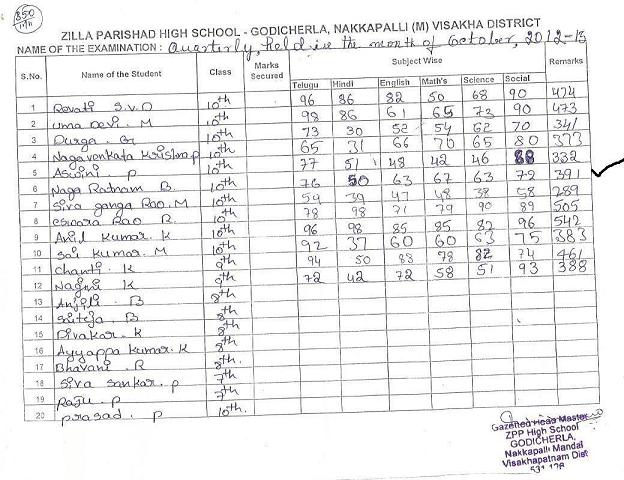 850
ZILLA PARISHAD HIGH SCHOOL - GODICHERLA, NAKKAPALLI (M) VISAKHA DISTRICT
NAME OF THE EXAMINATION : Quarterly, held in the month of October, 2012-13
S.No. Name of the Student Class Marks Secured Subject Wise Remarks
Telugu Hindi English Math's Science Social
1 Revati S.V.D 10th 96 86 82 50 68 90 474
2 Uma Devi. M 10th 98 86 61 65 73 90 473
3 Durga. Gr 10th 73 30 52 54 62 70 341
4 Naga venkata Krishna p 10th 65 31 66 70 65 80 373
5 Aswini . P 10th 77 51 48 42 46 68 332
6 Naga Ratnam B. 10th 76 50 63 67 63 72 391
7 Siva ganga Rao. M 10th 59 39 47 48 38 58 289
8 eswara Rao R. 10th 78 98 71 79 90 89 505
9 Anil Kumar. K 10th 96 98 85 85 82 96 542
10 Sai Kumar. M 10th 92 37 60 60 63 75 383
11 Chanti. K 9th 94 50 83 78 82 74 461
12 Nagini K 9th 72 42 72 58 51 93 388
13 Anjili. B 8th
14 Siteja. B 8th
15 Divakar. K 8th
16 Ayyappa Kumar. K 8th
17 Bhavani . R 8th.
18 Siva Sankar. p 7th
19 Raju . p 7th
20 prasad . p 10th.
Gazetted Head Master
ZPP High School
GODICHERLA,
Nakkapalli Mandal
Visakhapatnam Dist
531 126